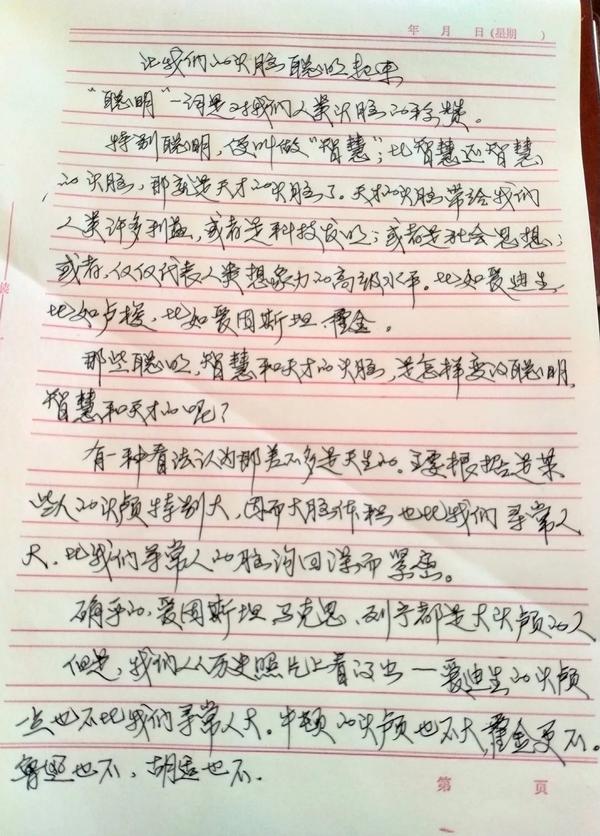 年 月 日(星期 )
让我们的头脑聪明起来
“聪明”一词是对我们人类头脑的称赞。
特别聪明,便叫做“智慧”;比智慧还智慧
的头脑,那就是天才的头脑了。天才的头脑带给我们
人类许多利益,或者是科技发明;或者是社会思想;
或者,仅仅代表人类想象力的高级水平。比如爱迪生,
比如卢梭,比如爱因斯坦、霍金。
那些聪明,智慧和天才的头脑,是怎样变得聪明,
智慧和天才的呢?
有一种看法认为那差不多是天生的。主要根据是某
些人的头颅特别大,因而大脑体积也比我们寻常人
大,比我们寻常人的脑沟回深而紧密。
确乎的,爱因斯坦,马克思,列宁都是大头颅的人
但是,我们从历史照片上看得出——爱迪生的头颅
一点也不比我们寻常人大。牛顿的头颅也不大,霍金更不。
鲁迅也不,胡适也不.
第 页